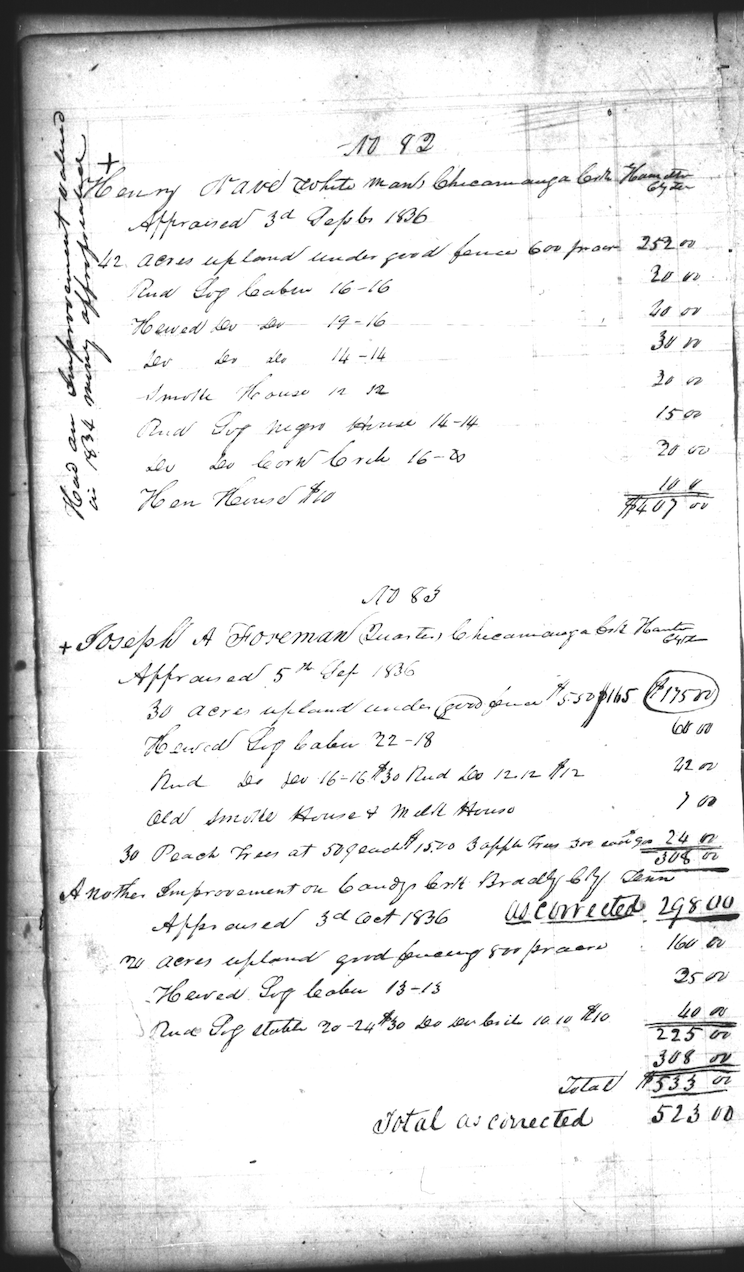 No 82
+
Henry Nave White man's Chicamauga Crk Hamilton Cty Ten
Appraised 3d Sept 1836
42 acres upland under good fence 600 pr acre 252 00
Rud Log Cabin 16-16 20 00
Hewed Do Do 19-16 40 00
Do Do Do 14-14 30 00
Smoke House 12 12 20 00
Rud Log negro House 14-14 15 00
Do Do Corn Crib 16-8 20 00
Hen House $10 10 0
$407 00
Had an Improvement valued
in 1834 money appropriated
No 83
+ Joseph A Foreman Quarters Chicamauga Crk
Appraised 5th Sep 1836
30 acres upland under good fence $5.50 $165 $175 00
Hewed Log Cabin 22-18 60 00
Rud Do Do 16-16 $30 Rud Do 12.12 $12 42 00
Old Smoke House & Milk House 7 00
30 Peach Trees at 50 each $15.00 3 apple Trees 300 each 9 00 24 00
308 00
Another Improvement on Candys Crk Bradly Cty Tenn
as corrected 298 00
Appraised 3d Oct 1836
20 acres upland good fencing 800 pr acre 160 00
Hewed Log Cabin 13-13 25 00
Rud Log stable 20-24 $30 Do Do Crib 10.10 $10 40 00
225 00
308 00
Total $533 00
Total as corrected 523 00